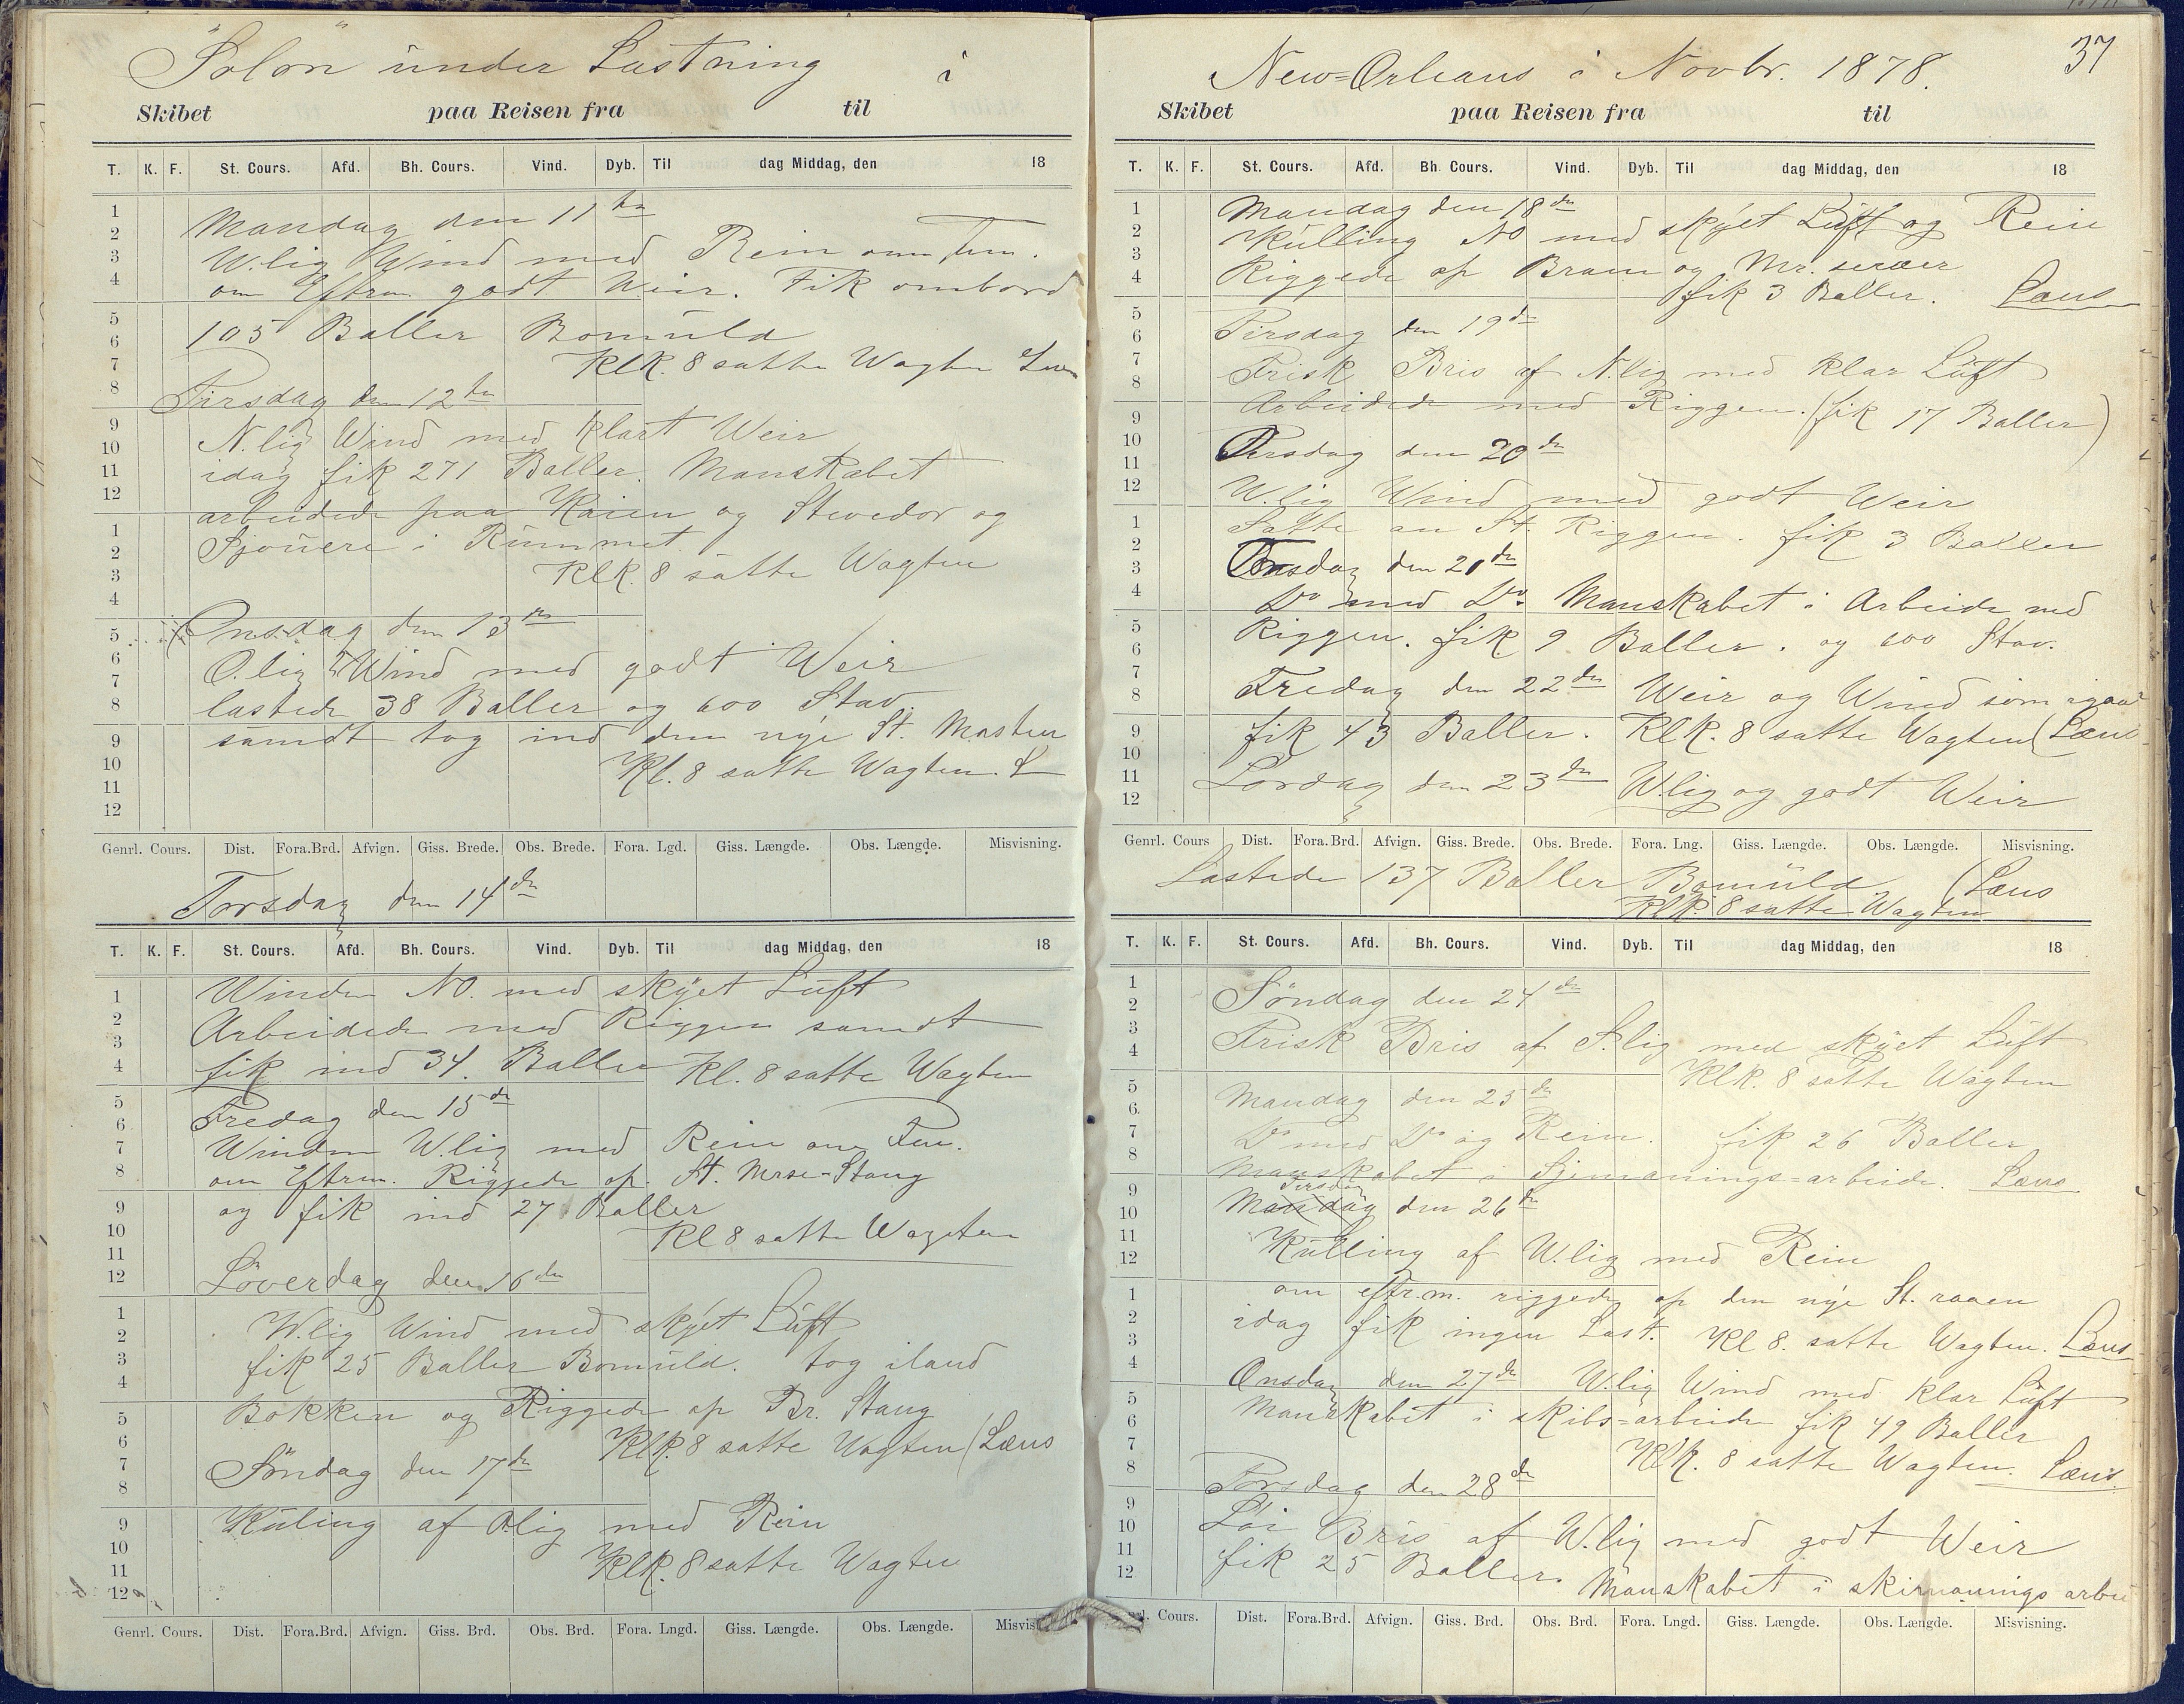 "Solon" under Lastning i
Skibet paa Reisen fra til
T. K. F. St. Cours. Afd. Bh. Cours. Vind. Dyb. Til dag Middag, den 18
Mandag den 11te
W.lig Wind med Rein om Fm.
om Eftrm. godt Weir. Fik ombord
105 Baller Bomuld
Klk. 8 satte Wagten
Tirsdag den 12te
N.lig Wind med klart Weir
idag fik 271 Baller. Manskabet
arbeidede paa Kaien og Stevedor og
Sjouere i Rummet
Klk. 8 satte Wagten
Onsdag den 13de
O.lig Wind med godt Weir
lastede 38 Baller og 600 Stav.
samdt tog ind den nye St. Masten
Kl. 8 satte Wagten. L
1 2 3 4 5 6 7 8 9 10 11 12
1 2 3 4 5 6 7 8 9 10 11 12
Genrl. Cours. Dist. Fora.Brd. Afvign. Giss. Brede. Obs. Brede. Fora. Lgd. Giss. Længde. Obs. Længde. Misvisning.
Torsdag den 14de
T. K. F. St. Cours. Afd. Bh. Cours. Vind. Dyb. Til dag Middag, den 18
Winden NO. med skyet Luft
Arbeidede med Riggen samdt
fik ind 34. Baller Kl. 8 satte Wagten
Fredag den 15de
Winden W.lig med Rein om Fm.
om Eftrm. Riggede op St. Merse-Stang
og fik ind 27 Baller
Kl 8 satte Wagten
Löverdag den 16de
W.lig Wind med skyet Luft
fik 25 Baller Bomuld. tog iland
Bokken og Riggede op Br. Stang
Klk. 8 satte Wagten (Læns
Söndag den 17de
Kuling af Olig med Rein
Klk. 8 satte Wagten
1 2 3 4 5 6 7 8 9 10 11 12
1 2 3 4 5 6 7 8 9 10 11 12
Genrl. Cours. Dist. Fora.Brd. Afvign. Giss. Brd. Obs. Brd. Fora. Lngd. Giss. Længde. Obs. Længde. Misvis
New=Orleans i Novbr. 1878.
37
Skibet paa Reisen fra til
T. K. F. St. Cours. Afd. Bh. Cours. Vind. Dyb. Til dag Middag, den 18
Mandag den 18de
Kulling NO med skyet Luft og Rein
Riggede op Bram og Mr.
fik 3 Baller. Læns
Tirsdag den 19de
Frisk Bris af N.lig med klar Luft
Arbeidede med Riggen. (fik 17 Baller)
den 20de
W.lig Wind med godt Weir
Satte an St. Riggen. fik 3 Baller
den 21de
Do med Do. Manskabet i Arbeide med
Riggen. fik 9 Baller. og 600 Stav.
Fredag den 22de Weir og Wind som igaar
fik 43 Baller. Klk. 8 satte Wagten (Læns
Lördag den 23de W.lig og godt Weir
1 2 3 4 5 6 7 8 9 10 11 12
1 2 3 4 5 6 7 8 9 10 11 12
Genrl. Cours Dist. Fora.Brd. Afvign. Giss. Brede. Obs. Brede. Fora. Lng. Giss. Længde. Obs. Længde. Misvisning.
Lastede 137 Baller Bomuld (Læns
Klk. 8 satte Wagten
T. K. F. St. Cours. Afd. Bh. Cours. Vind. Dyb. Til dag Middag, den 18
Söndag den 24de
Frisk Bris af S.lig med skyet Luft
Klk. 8 satte Wagten
Mandag den 25de
Do med Do og Rein. fik 26 Baller
Manskabet i Sjimanings=arbeide. Læns
Tirsdag
Mandag den 26de
Kulling af W.lig med Rein
om eftr.m. riggede op den nye St. raaen
idag fik ingen Last. Kl 8. satte Wagten. Læns
Onsdag den 27de W.lig Wind med klar Luft
Manskabet i skibs=arbeide fik 49 Baller
Klk. 8 satte Wagten. Læns.
Torsdag den 28de
Löi Bris af W.lig med godt Weir
fik 25 Baller. Manskabet i
1 2 3 4 5 6 7 8 9 10 11 12
1 2 3 4 5 6 7 8 9 10 11 12
Cours. Dist. Fora.Brd. Afvign. Giss. Brd. Obs. Brd. Fora. Lngd. Giss. Længde. Obs. Længde. Misvisning.